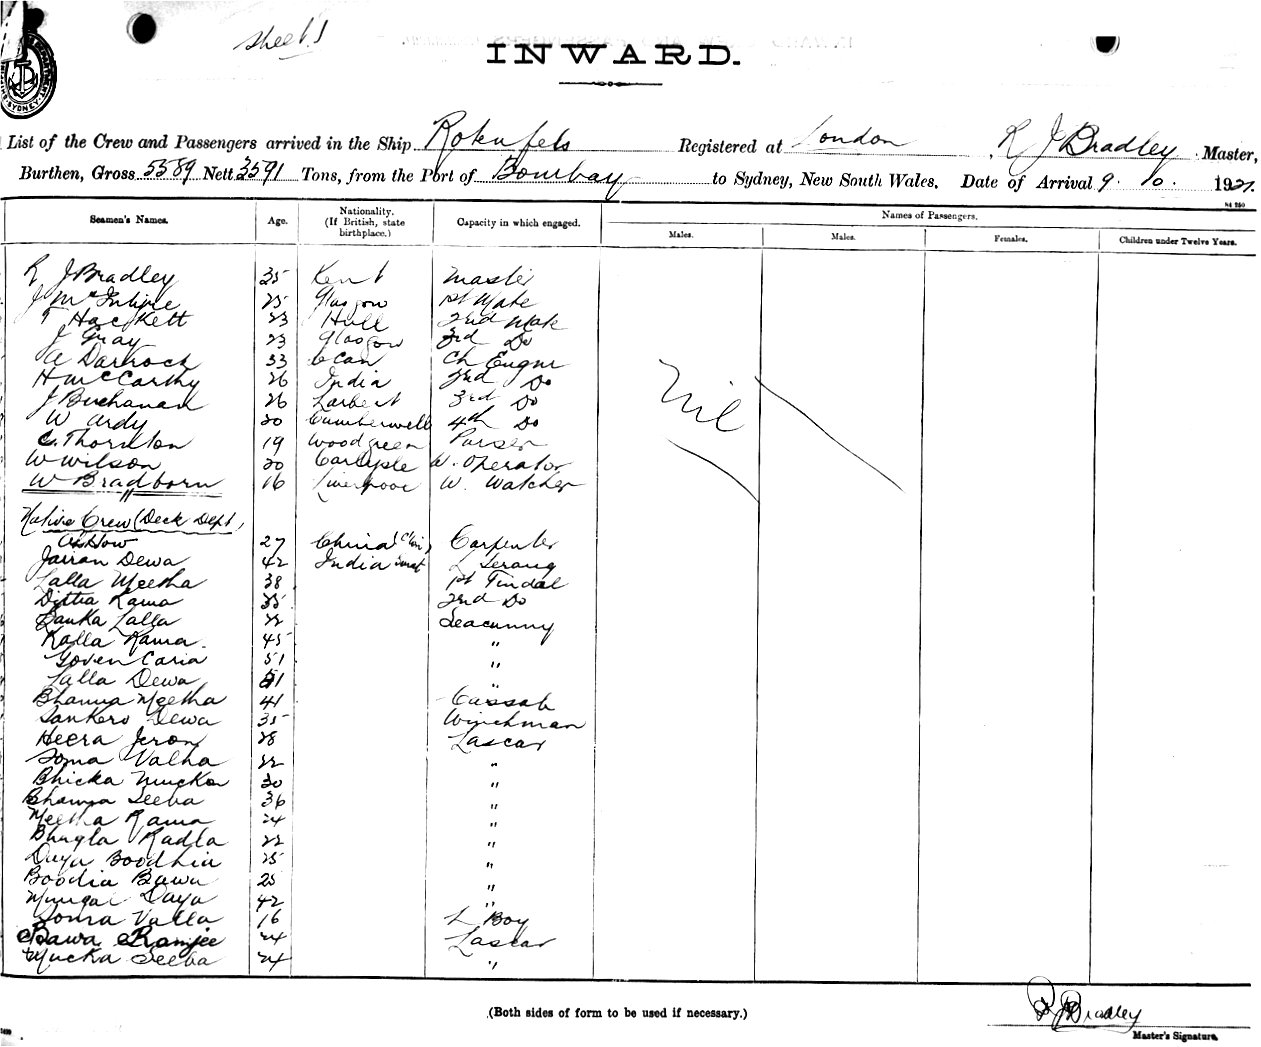 Sheet 1
INWARD.
SYDNEY
List of the Crew and Passengers arrived in the Ship Rotenfels Registered at London R J Bradley Master,
Burthen, Gross 5589 Nett 3591 Tons, from the Port of Bombay to Sydney, New South Wales. Date of Arrival 9. 10. 1921.
Seamen's Names. Age. Nationality. (If British, state birthplace.) Capacity in which engaged. Names of Passengers.
Males. Males. Females. Children under Twelve Years.
R J Bradley 35 Kent Master
J McIntyre 25 Glasgow 1st Mate
T Hackett 23 Hull 2nd Mate
J Gray 23 Glasgow 3rd Do
A Darroch 33 Ch Engnr
H McCarthy 26 India 2nd Do
J Buchanan 26 Larbert 3rd Do
W Ardy 20 Camberwell 4th Do
C. Thornton 19 Woodgreen Purser
W Wilson 20 Carlysle W. Operator
W Bradborn 16 Liverpool W. Watcher
Nil
"
Native Crew (Deck Dept)
Ah How 27 China Carpenter
Jairan Dewa 42 India Surat L Serang
Lalla Meetha 38 1st Tindal
Dittia Rama 35 2nd Do
Lalla Seacunny
Kalla Rama. 45 "
Goven Caria 51 "
Lalla Dewa "
Bhanna Meetha 41 Cassab
Sankero Dewa 35 Winchman
Heera Jeron 28 Lascar
Soma Valha 22 "
Bhicka Mucka 30 "
Bhanna Seeba 36 "
Meetha Rama 24 "
Bhugla Radla 22 "
Daya Boodhia 25 "
Boodia Bawa 25 "
Mungal Daya 42 "
Soma Valla 16 L Boy
Bawa Ramjee 24 Lascar
Mucka Seeba 24 "
(Both sides of form to be used if necessary.)
R J Bradley
Master's Signature.